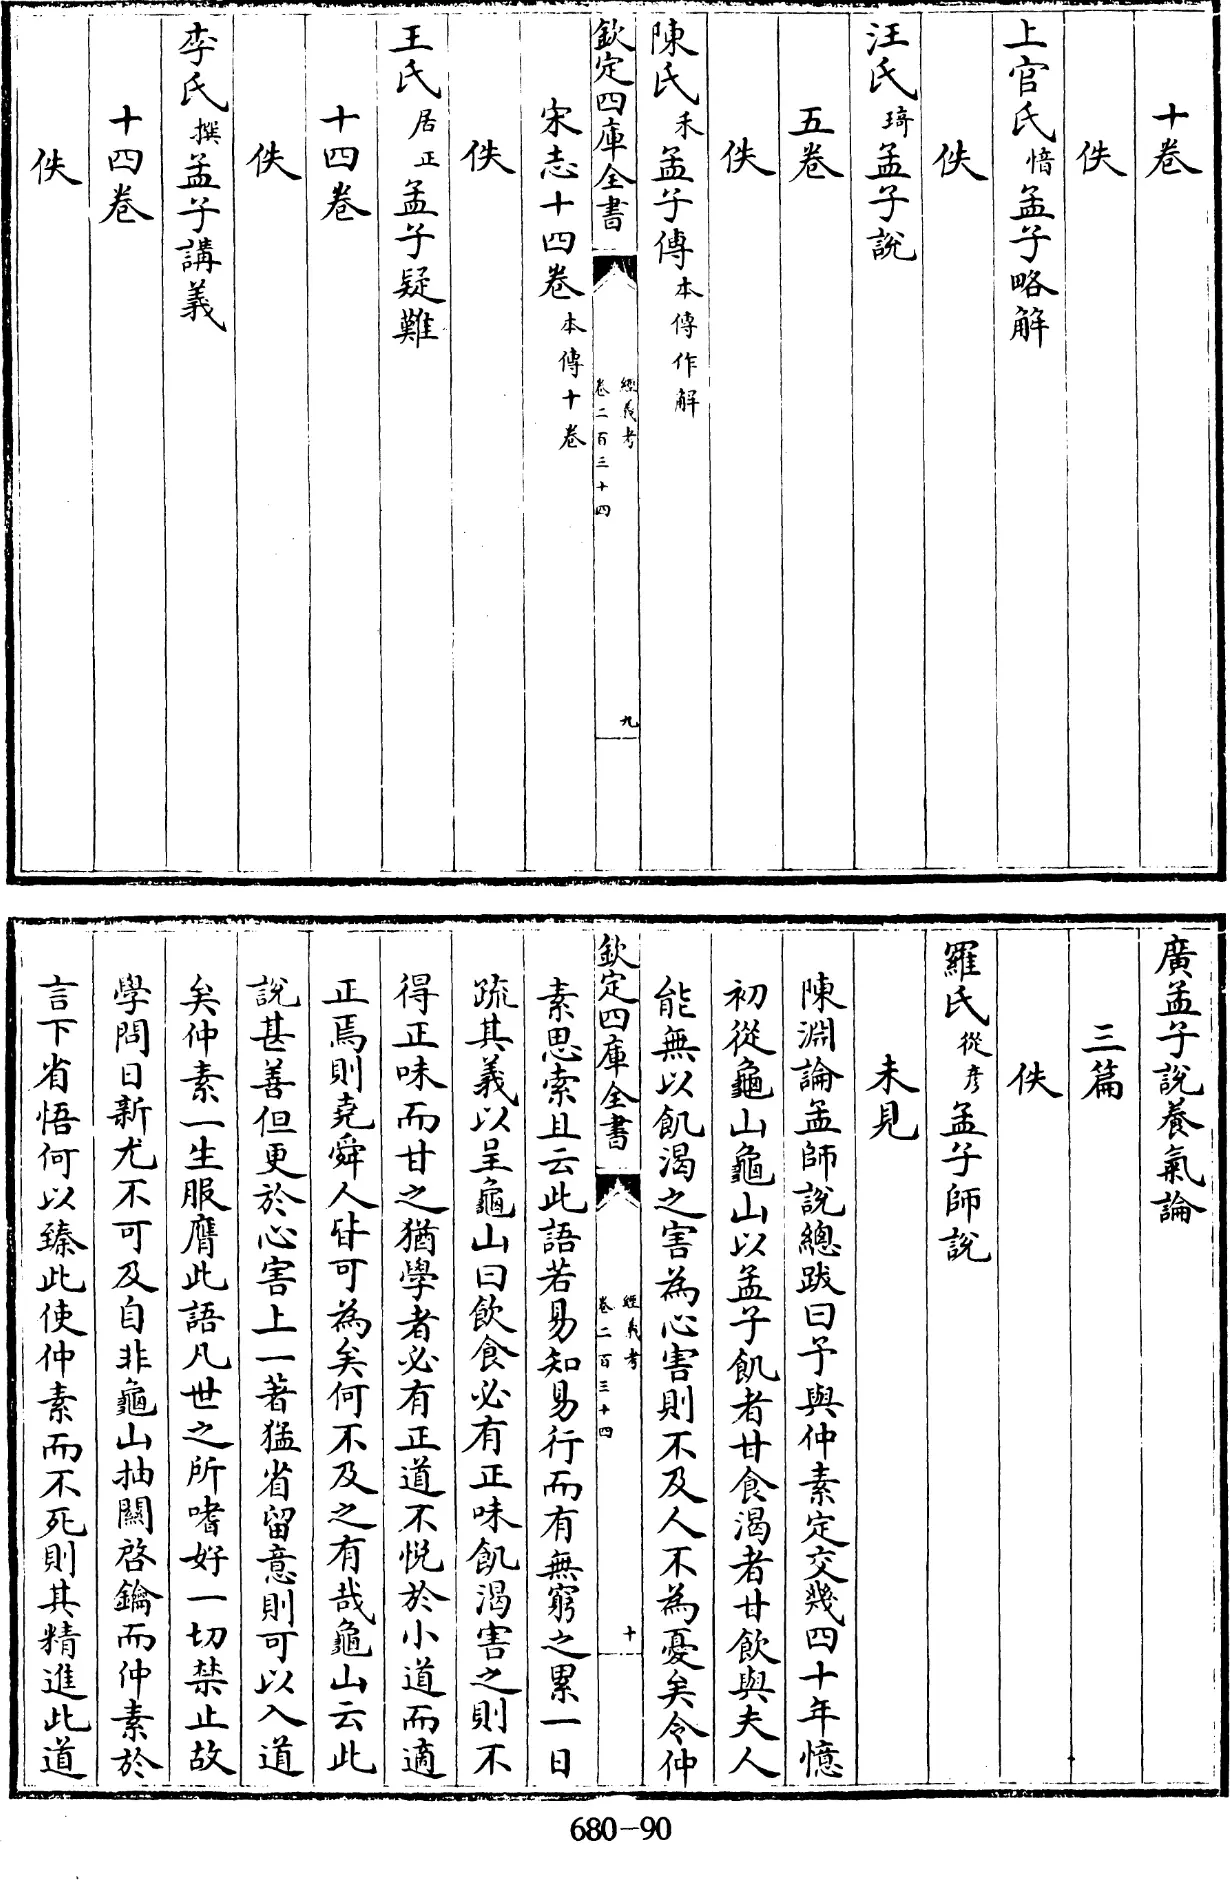 十卷
佚
上官氏愔孟子略解
佚
汪氏琦孟子說
五卷
佚
陳氏禾孟子傳本傳作解
欽定四庫全書
經義考
卷二百三十四
九
宋志十四卷本傳十卷
佚
王氏居正孟子疑難
十四卷
佚
李氏撰孟子講義
十四卷
佚
廣孟子說養氣論
三篇
佚
羅氏從彥孟子師說
未見
陳淵論孟師說總跋曰予與仲素定交幾四十年憶
初從龜山龜山以孟子飢者甘食渴者甘飲與夫人
能無以飢渴之害為心害則不及人不為憂矣令仲
欽定四庫全書
經義考
卷二百三十四
十
素思索且云此語若易知易行而有無窮之累一日
疏其義以呈龜山曰飲食必有正味飢渴害之則不
得正味而甘之猶學者必有正道不悅於小道而適
正焉則堯舜人皆可為矣何不及之有哉龜山云此
說甚善但更於心害上一著猛省留意則可以入道
矣仲素一生服膺此語凡世之所嗜好一切禁止故
學問日新尤不可及自非龜山抽關啓鑰而仲素於
言下省悟何以臻此使仲素而不死則其精進此道
680-90